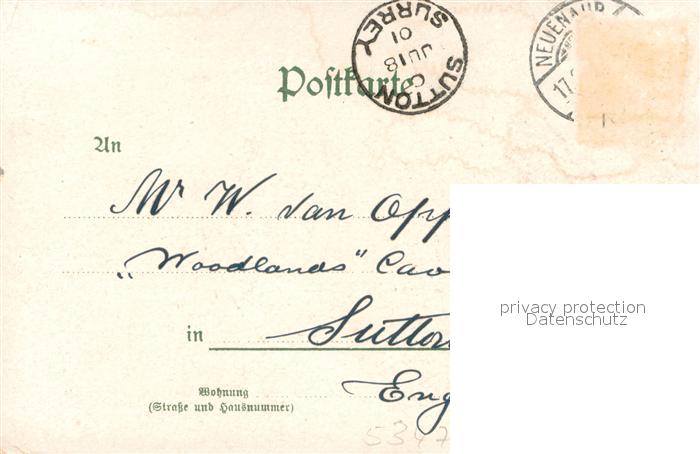 SUTTON SURREY
C
JU 18
01
NEUENAHR
17.
Postkarte
An
Mr W. van Opp
„Woodlands" Cav
in Sutton
Eng
Wohnung
(Straße und Hausnummer)
5347
privacy protection
Datenschutz